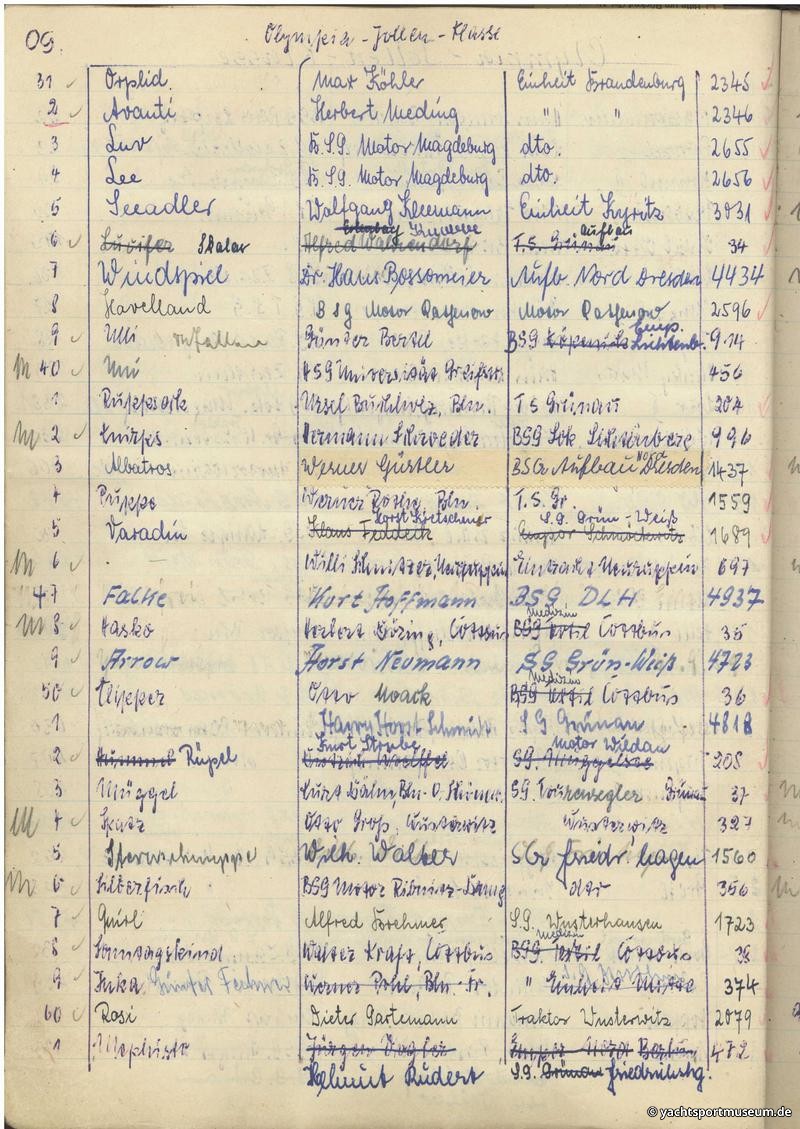 09. Olympia-Jollen-Klasse
31 Orplid. Max Köhler Einheit Brandenburg 2345
2 Avanti Herbert Meding " " " 2346
3 Luv B.S.G. Motor Magdeburg dto. 2655
4 Lee B.S.G. Motor Magdeburg dto. 2656
5 Seeadler Wolfgang Kleemann Einheit Kyritz 3031
6 Lucifer Skalar Alfred Wallendorf T.S. Grünau Aufbau 34
7 Windspiel Dr. Hans Bossomeier Aufb. Nord Dresden 4434
8 Havelland BSG Motor Rathenow Motor Rathenow 2596
9 Ulli Günter Bertel BSG Köpenick Lichtenb. 914
M 40 HSG Universität Greifsw. 456
1 Ruppsack Ursel Buchholz, Bln. TS Grünau 204
M 2 Knirps Hermann Schroeder BSG Lichtenberg 996
3 Albatros Werner Gürtler BSG Aufbau Nord Dresden 1437
4 Puppe Werner Bln. T.S. Gr. 1559
5 Varadin Klaus Feddeck Horst Kretschmer S.G. Grün-Weiß Schmöckwitz 1689
M 6 - Willi Neuruppin Eintracht Neuruppin 697
47 Falke Kurt Hoffmann BSG DLH 4937
M 8 Hasko Herbert Göring, Cottbus BSG Textil Medizin Cottbus 35
9 Arrow Horst Neumann SG Grün-Weiß 4723
50 Klipper Otto Noack BSG Textil Medizin Cottbus 36
1 Harry Horst Schmidt SG Grünau 4818
2 Hummel Rüpel Kurt Strobe Motor Wildau SG. Müggelsee 205
3 Müggel Kurt Bln-O, SG. Tourensegler Grünau 37
M 4 Spatz Otto Groß, Wusterwitz Wusterwitz 327
5 Wilh. Walter SG Friedr.hagen 1560
M 6 Silberfisch BSG Motor Ribnitz-Damg dto 356
7 Quirl Alfred Brehmer S.G. Wusterhausen 1723
8 Sonntagskind Walter Kraft, Cottbus BSG. Textil Medizin Cottbus 38
9 Inka Günter Werner Pohl, Bln.-Fr. " Einheit Mitte 374
60 Rosi Dieter Gartemann Traktor Wusterwitz 2079
1 Mephisto Jürgen Vogler Empor Nord Berlin 472
Helmut Rudert S.G. Grünau Friedrichshg.
© yachtsportmuseum.de